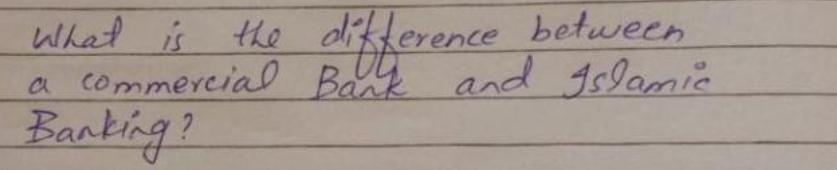 What is the difference between
a commercial Bank and Islamic
Banking?